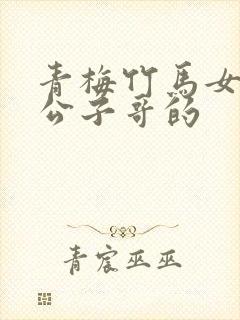 青梅竹马女
公子哥的
青宸巫巫